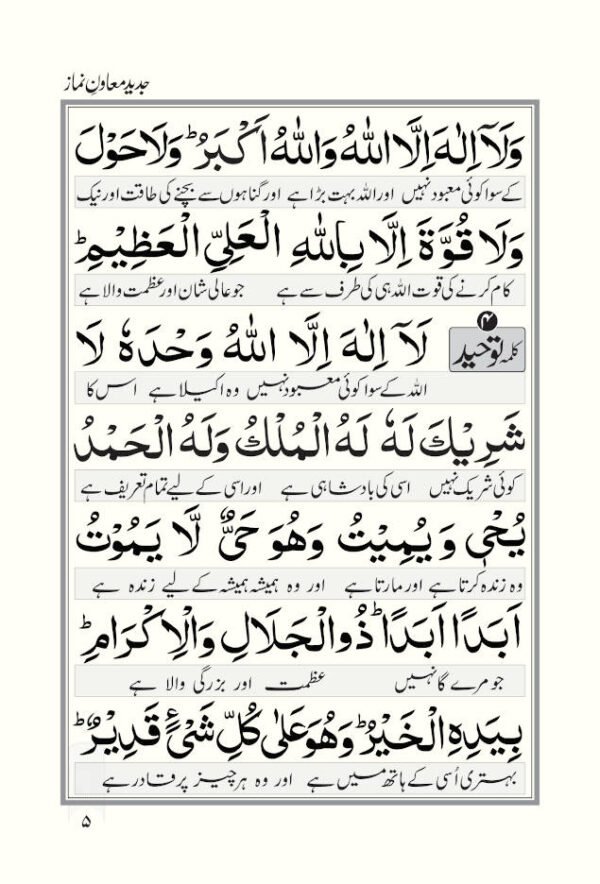 جدید معاونِ نماز
وَلَآ اِلٰهَ اِلَّا اللّٰهُ وَاللّٰهُ اَكْبَرُ ؕ وَلَا حَوْلَ
کے سوا کوئی معبود نہیں اور اللہ بہت بڑا ہے اور گناہوں سے بچنے کی طاقت اور نیک
وَلَا قُوَّةَ اِلَّا بِاللّٰهِ الْعَلِیِّ الْعَظِیْمِ ؕ
کام کرنے کی قوت اللہ ہی کی طرف سے ہے جو عالی شان اور عظمت والا ہے
۴ کلمہ توحید لَآ اِلٰهَ اِلَّا اللّٰهُ وَحْدَهٗ لَا
اللہ کے سوا کوئی معبود نہیں وہ اکیلا ہے اس کا
شَرِیْكَ لَهٗ لَهُ الْمُلْكُ وَلَهُ الْحَمْدُ
کوئی شریک نہیں اسی کی بادشاہی ہے اور اسی کے لیے تمام تعریف ہے
یُحْیٖ وَیُمِیْتُ وَهُوَ حَیٌّ لَّا یَمُوْتُ
وہ زندہ کرتا ہے اور مارتا ہے اور وہ ہمیشہ ہمیشہ کے لیے زندہ ہے
اَبَدًا اَبَدًا ؕ ذُوالْجَلَالِ وَالْاِكْرَامِ ؕ
جو مرے گا نہیں عظمت اور بزرگی والا ہے
بِیَدِهِ الْخَیْرُ ؕ وَهُوَ عَلٰی كُلِّ شَیْءٍ قَدِیْرٌ ؕ
بہتری اُسی کے ہاتھ میں ہے اور وہ ہر چیز پر قادر ہے
۵